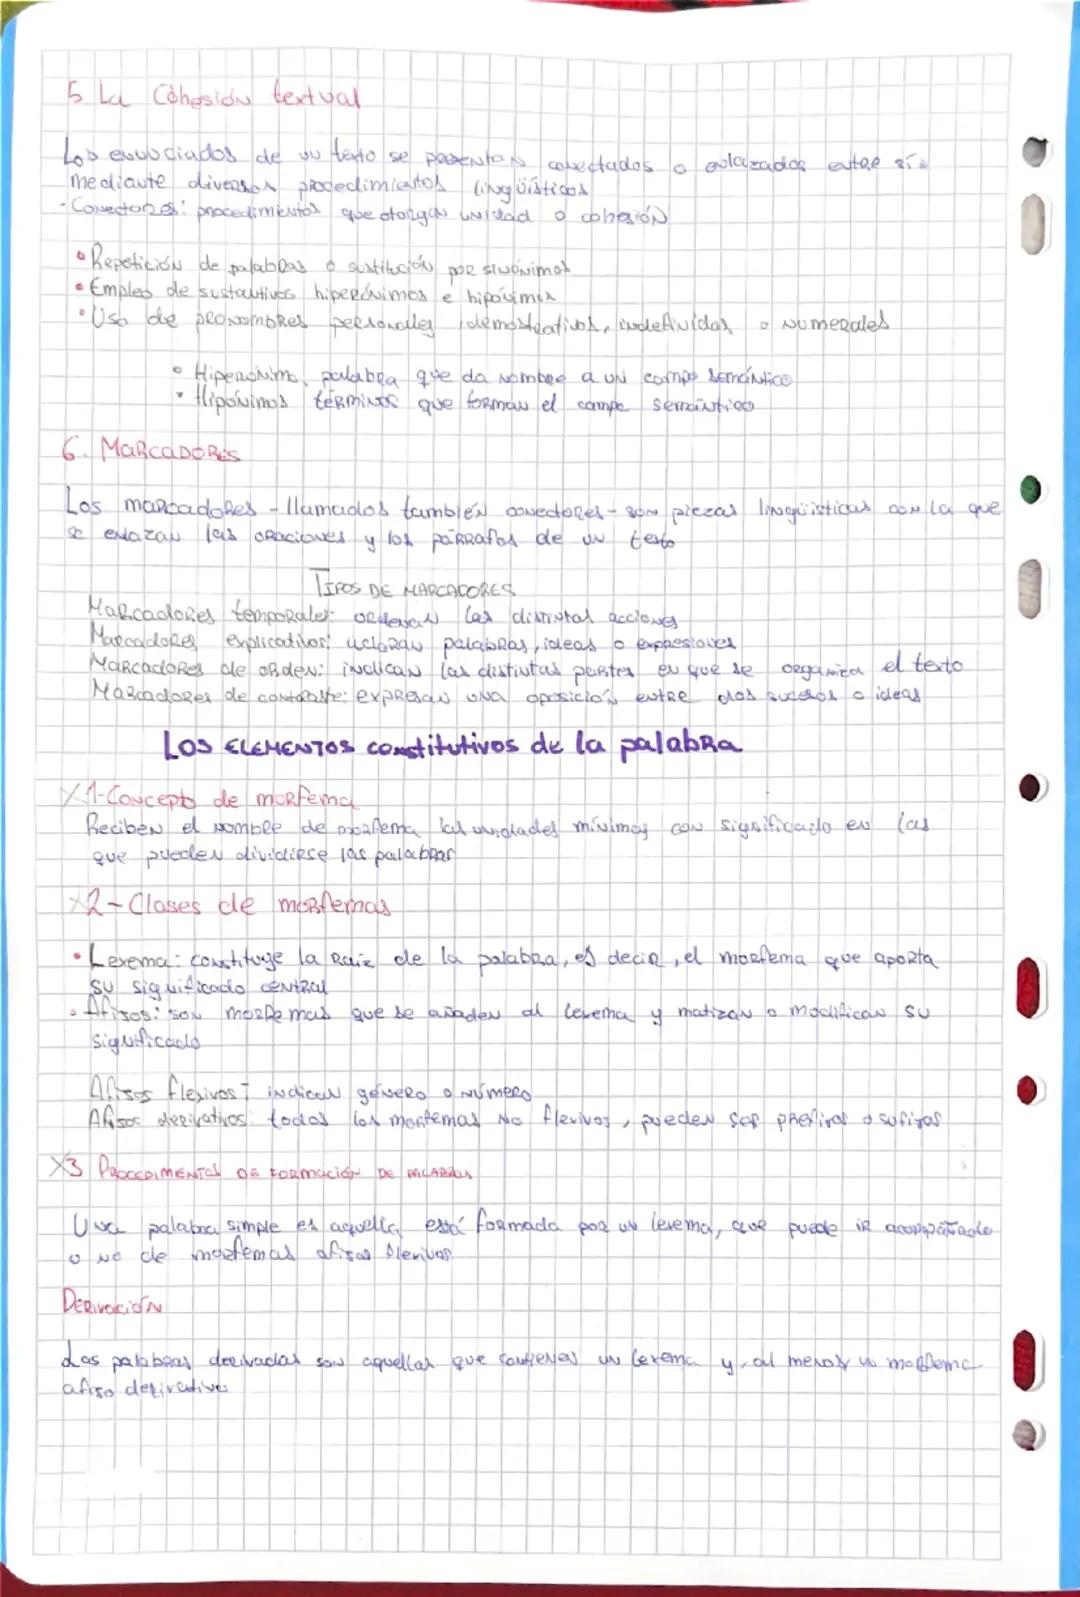 5 La Cohesión textual
Los enunciados de un texto se presentan conectados o enlazados entre sí
mediante diversos procedimientos lingüísticos
- Conectores: procedimientos que otorgan unidad o cohesión
• Repetición de palabras o sustitución por sinónimos
• Empleo de sustantivos hiperónimos e hipónimos
• Uso de pronombres personales, demostrativos, indefinidos o numerales
• Hiperónimo, palabra que da nombre a un campo semántico
• Hipónimos términos que forman el campo semántico
6. MARCADORES
Los marcadores - llamados también conectores - son piezas lingüísticas con la que
se enlazan las oraciones y los párrafos de un texto
TIPOS DE MARCADORES
Marcadores temporales: ordenan las distintas acciones
Marcadores explicativos: aclaran palabras, ideas o expresiones
Marcadores de orden: indican las distintas partes en que se organiza el texto
Marcadores de contraste: expresan una oposición entre dos sucesos o ideas
LOS ELEMENTOS constitutivos de la palabra
X1-Concepto de morfema
Reciben el nombre de morfema las unidades mínimas con significado en las
que pueden dividirse las palabras
X2-Clases de morfemas
• Lexema: constituye la raiz de la palabra, es decir, el morfema que aporta
su significado central
• Afisos: son morfemas que se añaden al lexema y matizan o modifican su
significado
Afisos flexivos: indican género o número
Afisos derivativos: todos los morfemas no flexivos, pueden ser prefijos o sufijos
X3 PROCEDIMENTOS DE FORMACIÓN DE PALABRAS
Una palabra simple es aquella está formada por un lexema, que puede ir acompañado
o no de morfemas afisos flexivos
DERIVACIÓN
Las palabras derivadas son aquellas que contienen un lexema y, al menos un morfema
afiso derivativo